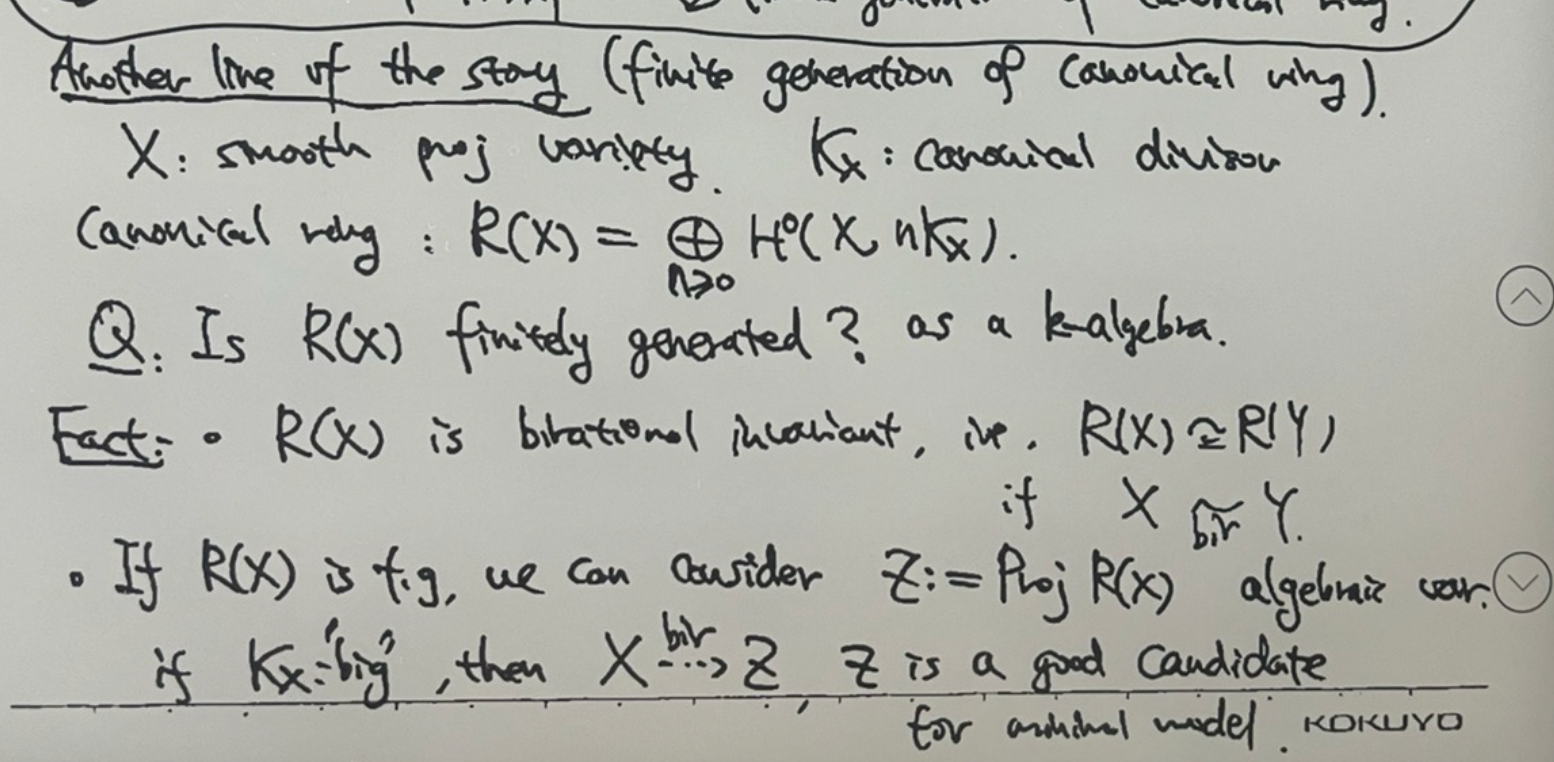 canonical ring.
Another line of the story (finite generation of canonical ring).
X: smooth proj variety. Kx: canonical divisor
Canonical ring: R(X) = ⊕ H⁰(X, nKx).
n≥0
Q: Is R(X) finitely generated? as a k-algebra.
Fact: • R(X) is birational invariant, i.e. R(X) ≃ R(Y)
if X ~bir Y.
• If R(X) is f.g, we can consider Z := Proj R(X) algebraic var.
if Kx: "big", then X ⇢bir Z, Z is a good candidate
for minimal model.
KOKUYO